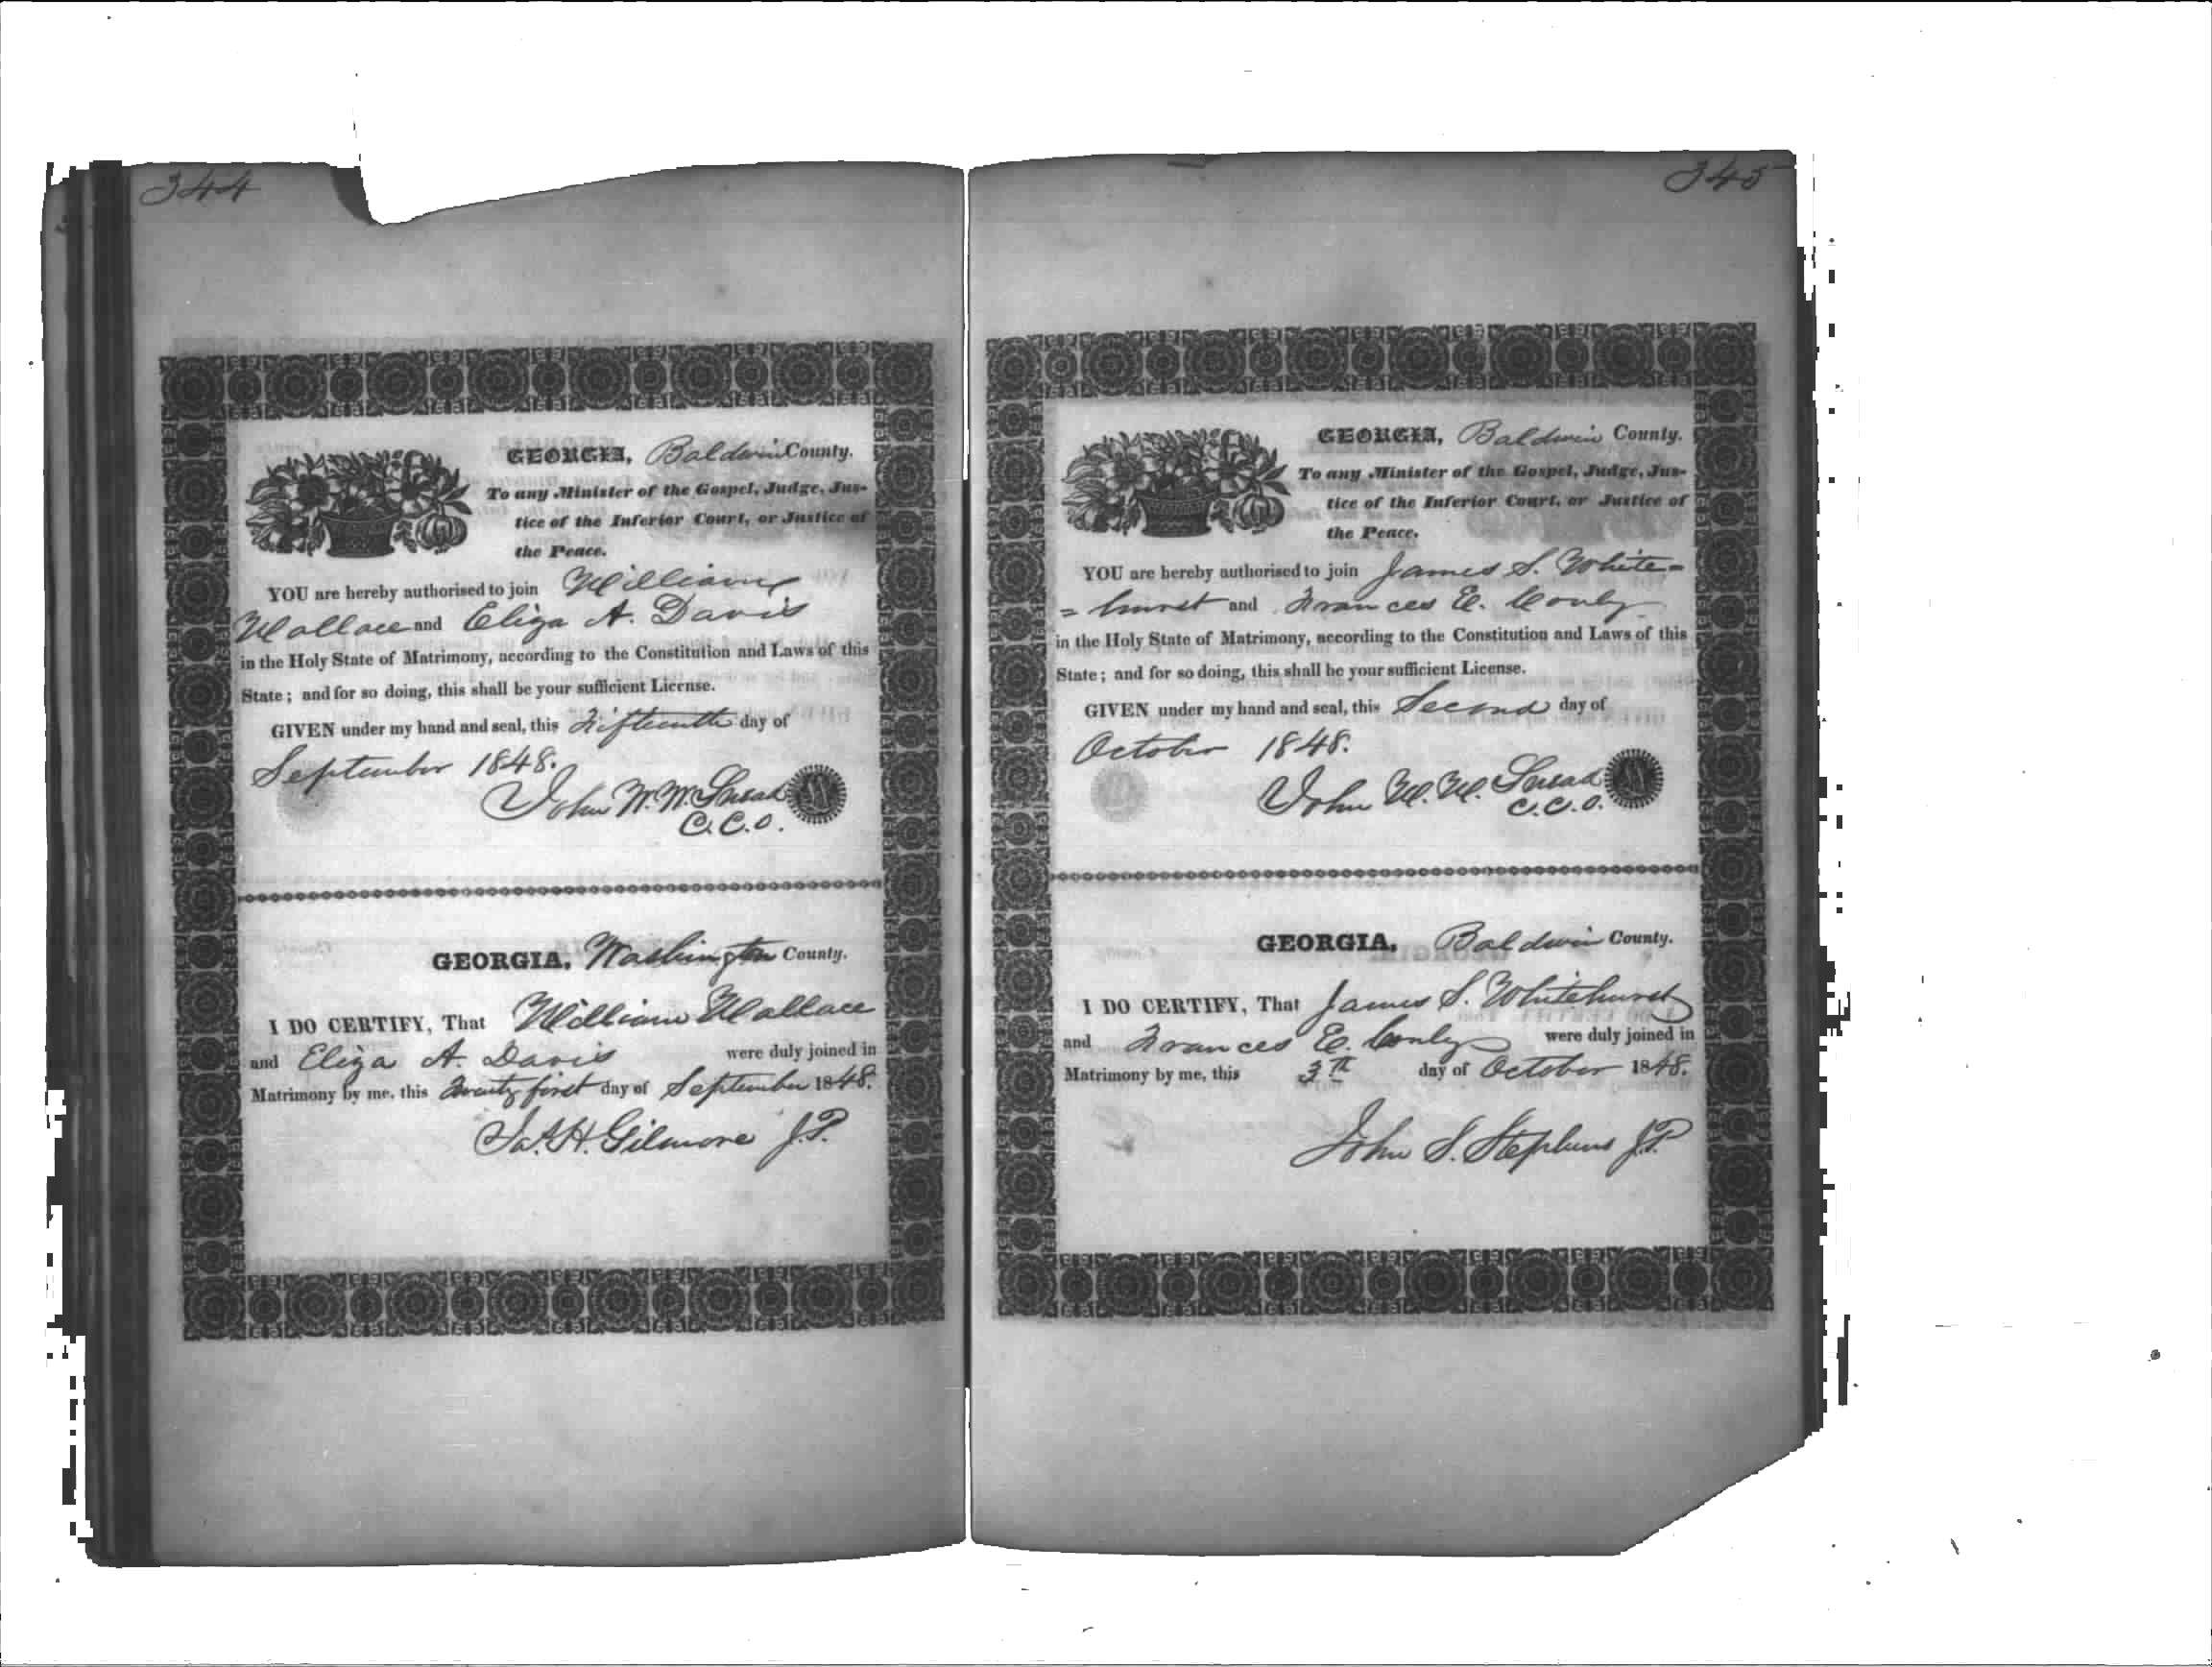 344
GEORGIA, Baldwin County.
To any Minister of the Gospel, Judge, Jus-
tice of the Inferior Court, or Justice of
the Peace.
YOU are hereby authorised to join William
Wallace and Eliza A. Davis
in the Holy State of Matrimony, according to the Constitution and Laws of this
State; and for so doing, this shall be your sufficient License.
GIVEN under my hand and seal, this Fifteenth day of
September 1848.
John W. W. Snead
C.C.O.
GEORGIA, Washington County.
I DO CERTIFY, That William Wallace
and Eliza A. Davis were duly joined in
Matrimony by me, this Twenty first day of September 1848.
Jas. H. Gilmore J.P.
345
GEORGIA, Baldwin County.
To any Minister of the Gospel, Judge, Jus-
tice of the Inferior Court, or Justice of
the Peace.
YOU are hereby authorised to join James S. White=
=hurst and Frances E. Conly
in the Holy State of Matrimony, according to the Constitution and Laws of this
State; and for so doing, this shall be your sufficient License.
GIVEN under my hand and seal, this Second day of
October 1848.
John W. W. Snead
C.C.O.
GEORGIA, Baldwin County.
I DO CERTIFY, That James S. Whitehurst
and Frances E. Conly were duly joined in
Matrimony by me, this 3th day of October 1848.
John S. Stephens J.P.